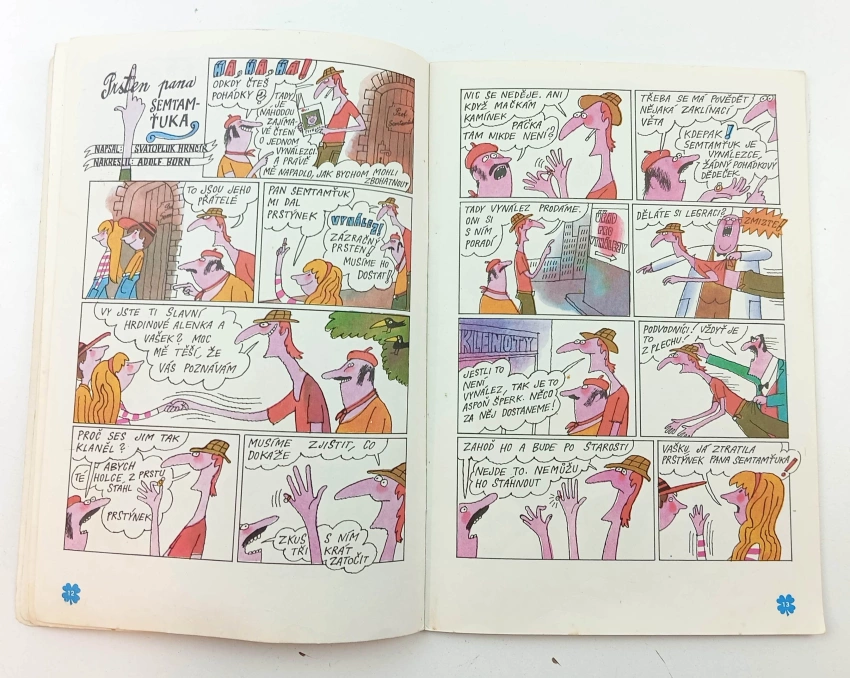 Prsten pana
ŠEMTAM-
ŤUKA
NAPSAL: SVATOPLUK HRNČÍŘ
NAKRESLIL: ADOLF BORN
ŇA, ŇA, ŇA!
ODKDY ČTEŠ
POHÁDKY?
TADY
JE
NÁHODOU
ZAJÍMA-
VÉ ČTENÍ
O JEDNOM
VYNÁLEZCI.
A PRÁVĚ
MĚ NAPADLO, JAK BYCHOM MOHLI
ZBOHATNOUT
TO JSOU JEHO
PŘÁTELÉ
PAN SEMTAMŤUK
MI DAL
PRSTÝNEK
VYNÁLEZ!
ZÁZRAČNÝ
PRSTEN!
MUSÍME HO
DOSTAT!
VY JSTE TI SLAVNÍ
HRDINOVÉ ALENKA A
VAŠEK? MOC
MĚ TĚŠÍ, ŽE
VÁS POZNÁVÁM
PROČ SES JIM TAK
KLANĚL?
ABYCH
TÉ HOLCE, Z PRSTU
STÁHL
PRSTÝNEK
MUSÍME ZJISTIT, CO
DOKÁŽE
ZKUS S NÍM
TŘI KRÁT
ZATOČIT
12
NIC SE NEDĚJE. ANI
KDYŽ MAČKÁM
KAMÍNEK
PÁČKA
TAM NIKDE NENÍ?
TŘEBA SE MÁ POVĚDĚT
NĚJAKÁ ZAKLÍNACÍ
VĚTA
KDEPAK!
SEMTAMŤUK JE
VYNÁLEZCE,
ŽÁDNÝ POHÁDKOVÝ
DĚDEČEK.
TADY VYNÁLEZ PRODÁME.
ONI SI
S NÍM
PORADÍ
ÚŘAD
PRO
VYNÁLEZY
DĚLÁTE SI LEGRACI?
ZMIZTE!
KLENOTY
JESTLI TO
NENÍ
VYNÁLEZ, TAK JE TO
ASPOŇ ŠPERK. NĚCO
ZA NĚJ DOSTANEME!
PODVODNÍCI! VŽDYŤ JE
TO
Z PLECHU!
ZAHOĎ HO A BUDE PO STAROSTI
NEJDE TO. NEMŮŽU
HO STÁHNOUT
VAŠKU, JÁ ZTRATILA
PRSTÝNEK PANA SEMTAMŤUKA!
13